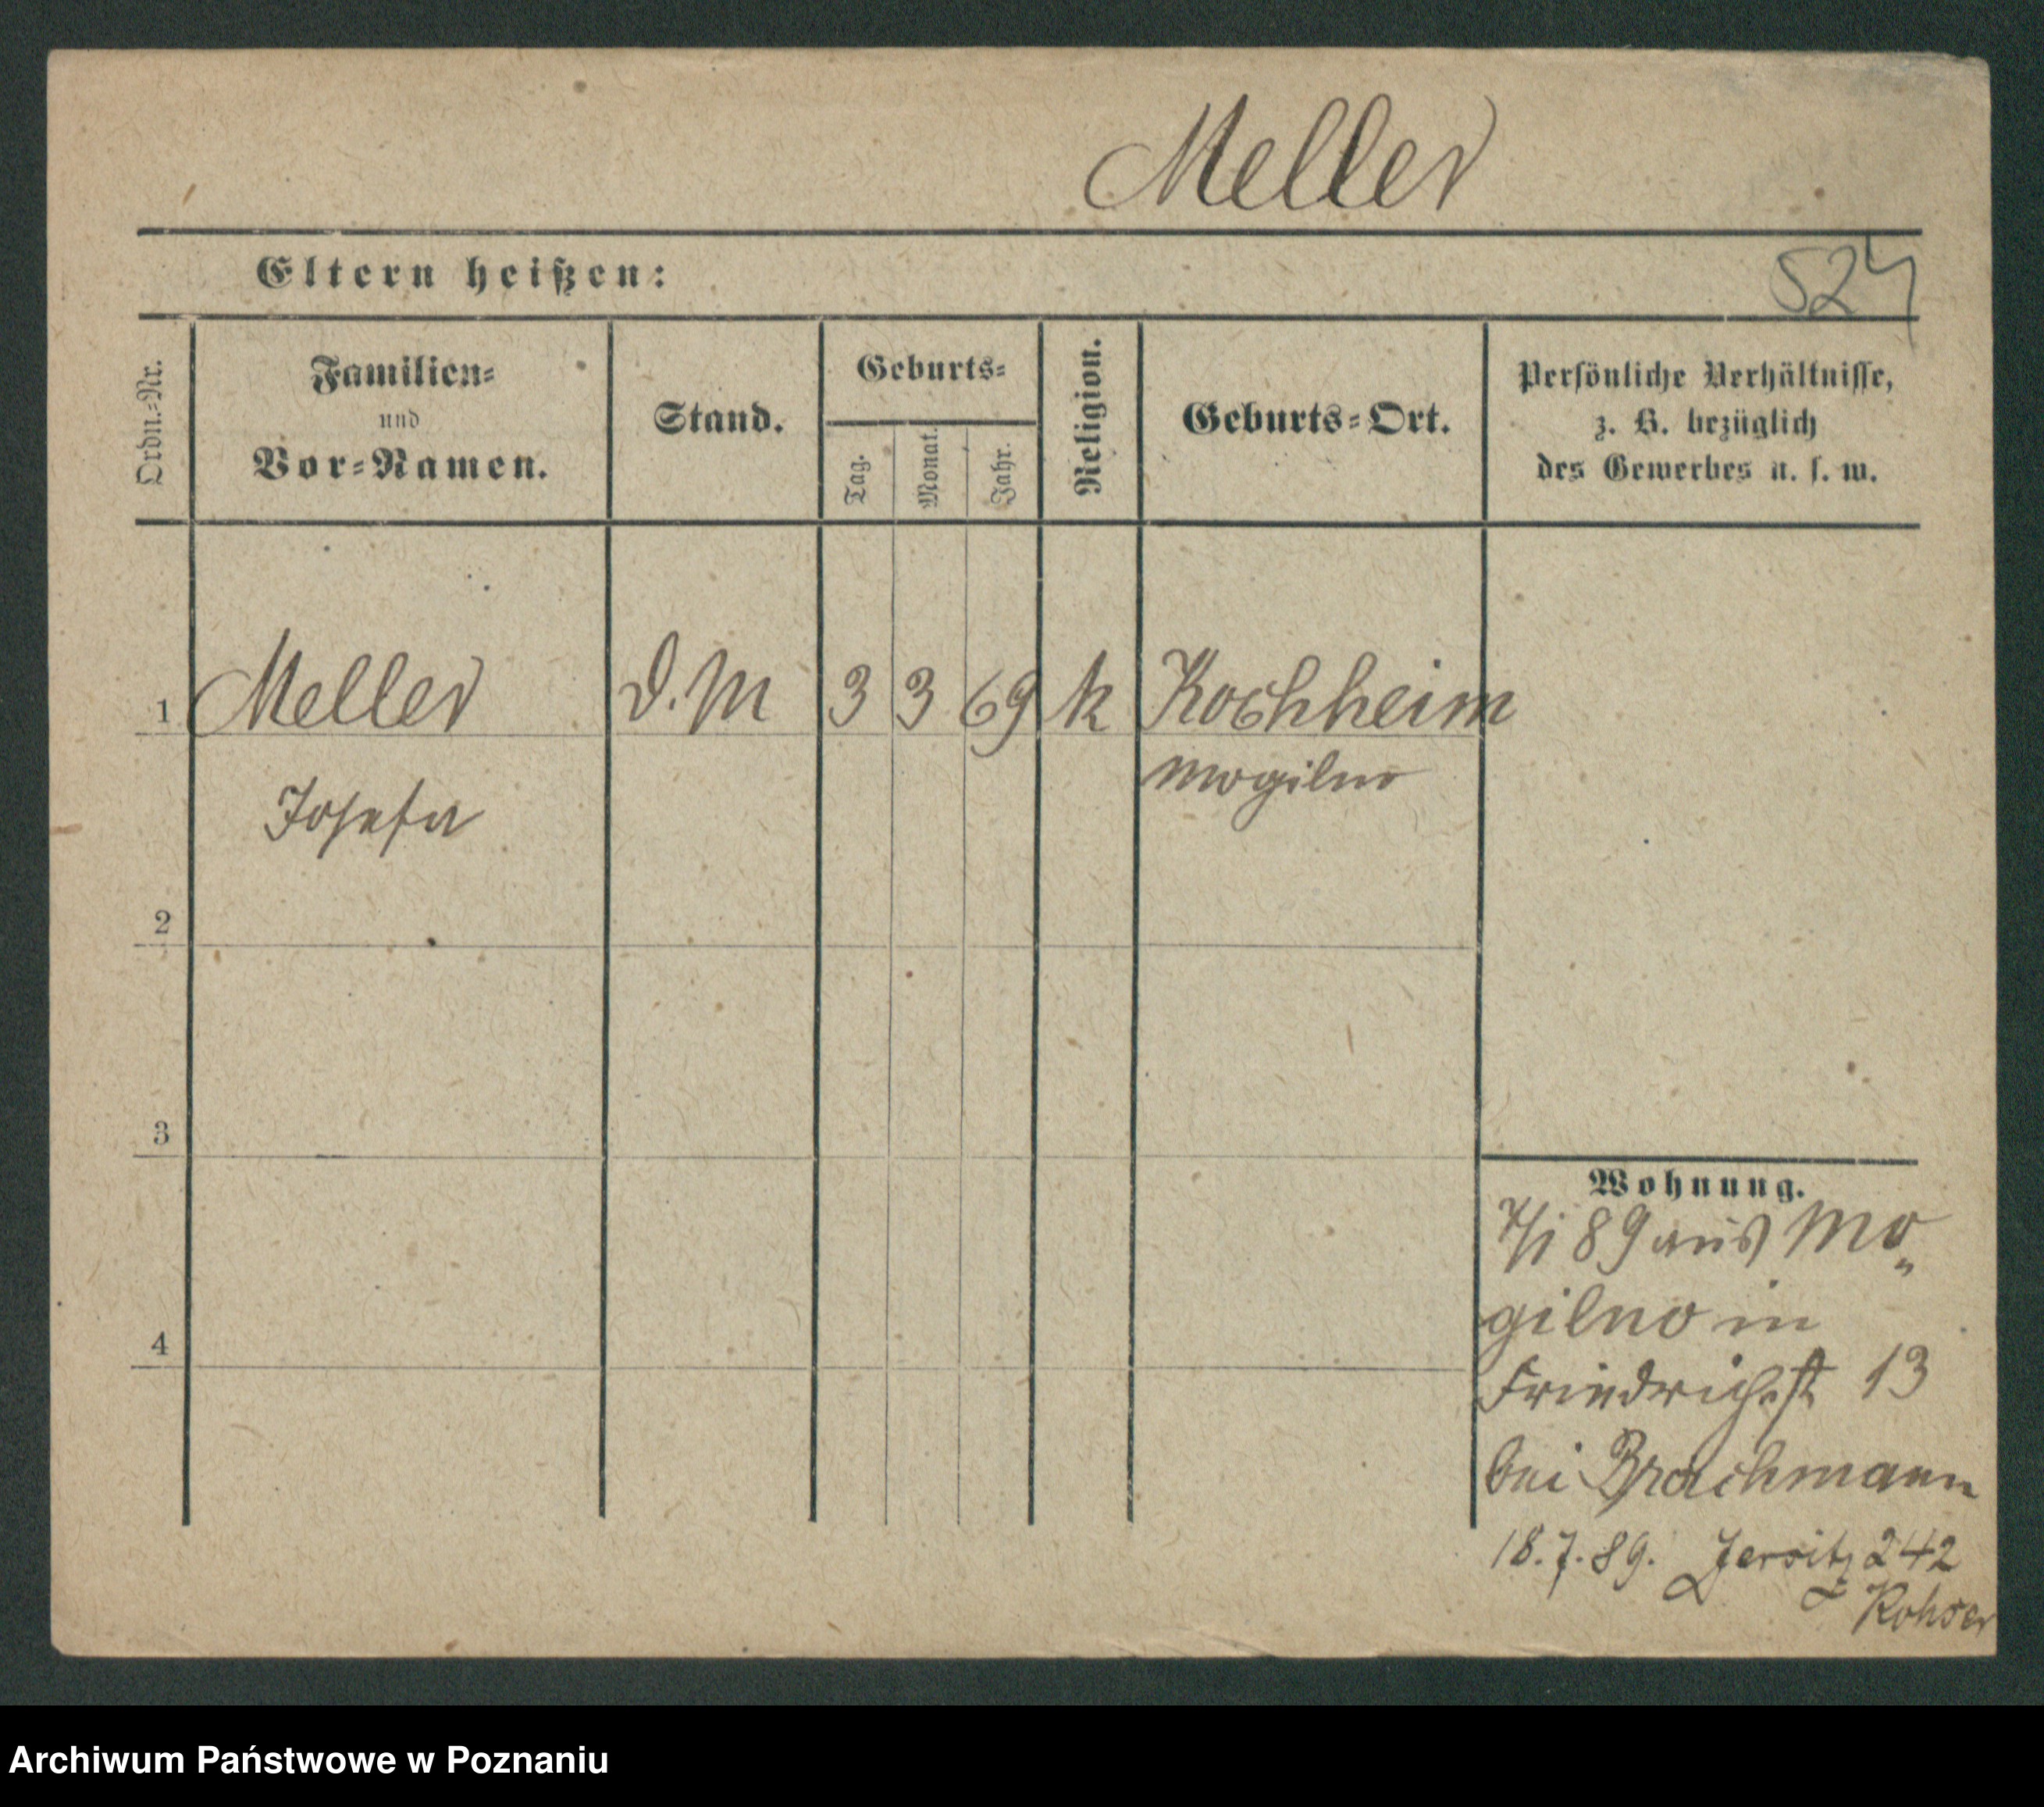 Meller
Eltern heißen:
524
Ordn.-Nr.
Familien-
und
Vor-Namen.
Stand.
Geburts-
Tag.
Monat.
Jahr.
Religion.
Geburts-Ort.
Persönliche Verhältnisse,
z. B. bezüglich
des Gewerbes u. s. w.
1 Meller D. M 3 3 69 k Kochheim
Mogilno
Josefa
2
3
4
Wohnung.
7/1 89 aus Mo„
gilno in
Friedrichst 13
bei Brachmann
18.7.89. Jersitz 242
Rohser
Archiwum Państwowe w Poznaniu